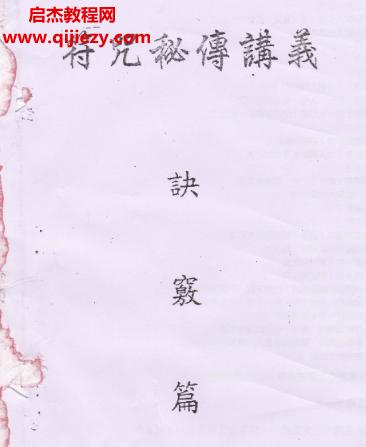 启杰教程网
www.qijiezy.com
符咒秘傳講義
訣
竅
篇